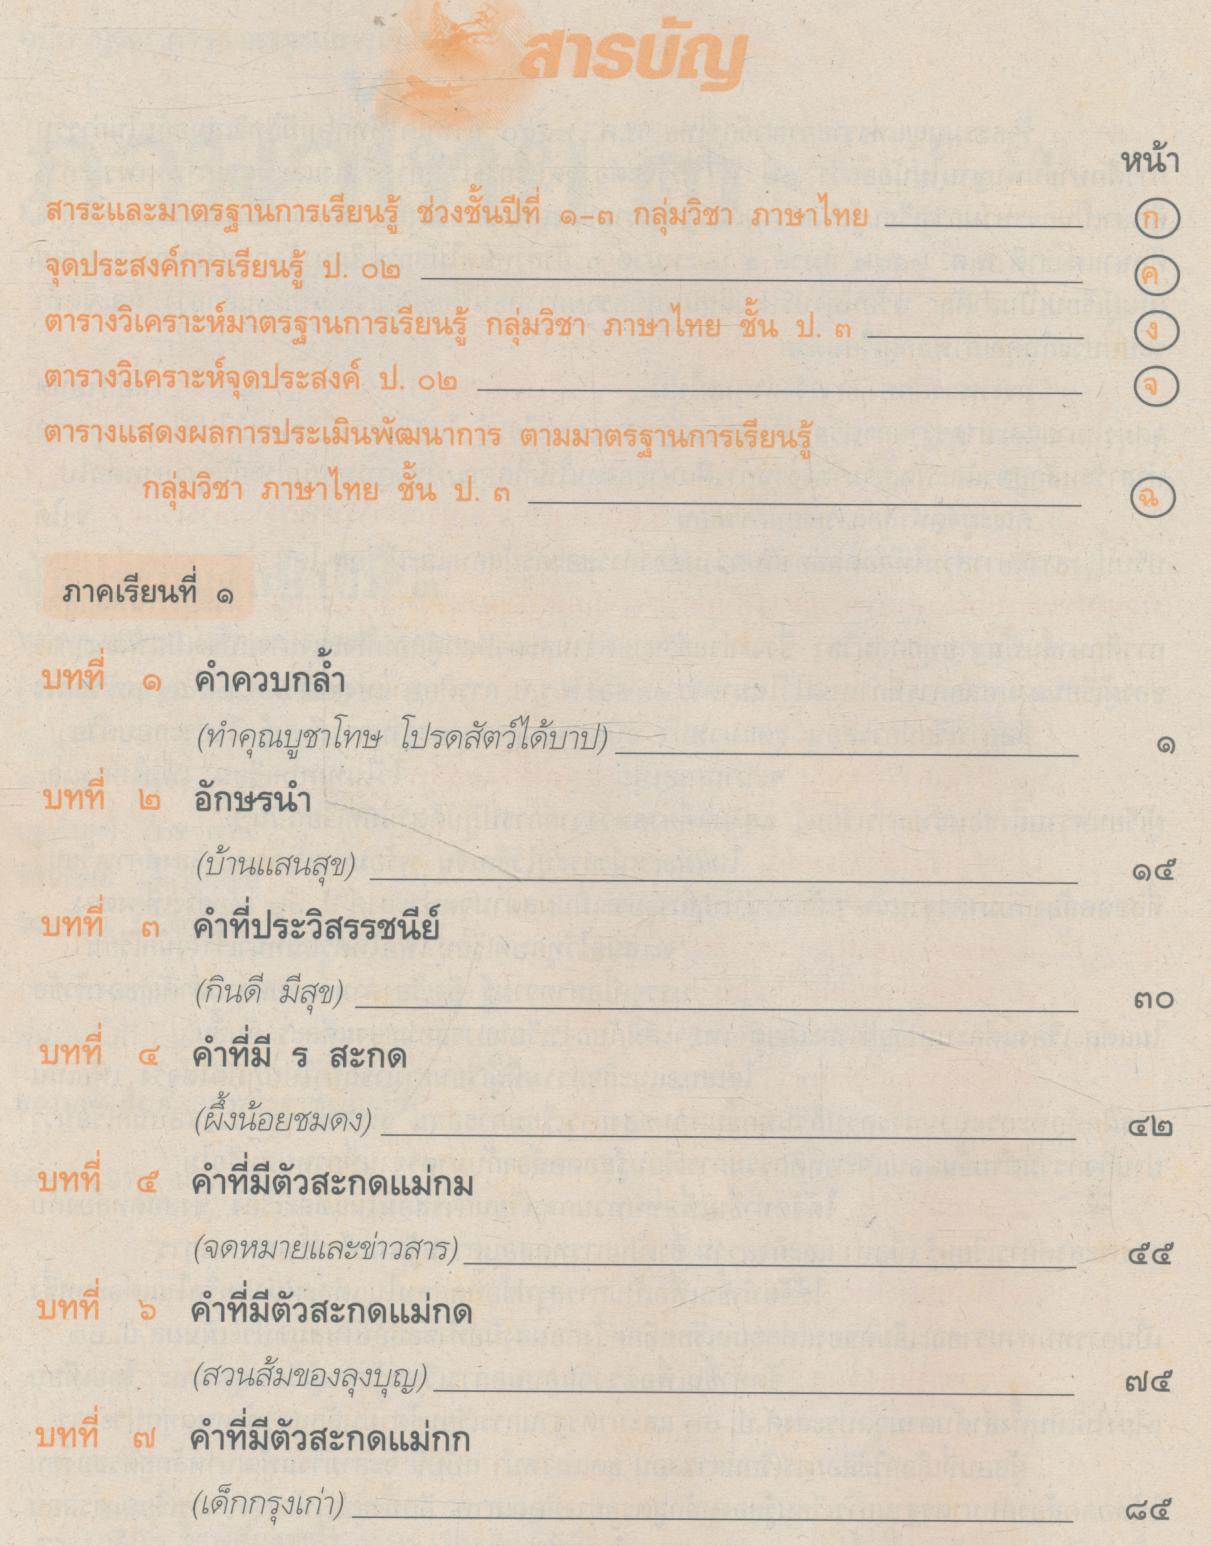 สารบัญ
หน้า
สาระและมาตรฐานการเรียนรู้ ช่วงชั้นปีที่ ๑-๓ กลุ่มวิชา ภาษาไทย ก
จุดประสงค์การเรียนรู้ ป. ๐๒ ค
ตารางวิเคราะห์มาตรฐานการเรียนรู้ กลุ่มวิชา ภาษาไทย ชั้น ป. ๓ ง
ตารางวิเคราะห์จุดประสงค์ ป. ๐๒ จ
ตารางแสดงผลการประเมินพัฒนาการ ตามมาตรฐานการเรียนรู้
กลุ่มวิชา ภาษาไทย ชั้น ป. ๓ ฉ
ภาคเรียนที่ ๑
บทที่ ๑ คำควบกล้ำ
(ทำคุณบูชาโทษ โปรดสัตว์ได้บาป) ๑
บทที่ ๒ อักษรนำ
(บ้านแสนสุข) ๑๕
บทที่ ๓ คำที่ประวิสรรชนีย์
(กินดี มีสุข) ๓๐
บทที่ ๔ คำที่มี ร สะกด
(ผึ้งน้อยชมดง) ๔๒
บทที่ ๕ คำที่มีตัวสะกดแม่กม
(จดหมายและข่าวสาร) ๕๕
บทที่ ๖ คำที่มีตัวสะกดแม่กด
(สวนส้มของลุงบุญ) ๗๕
บทที่ ๗ คำที่มีตัวสะกดแม่กก
(เด็กกรุงเก่า) ๘๕